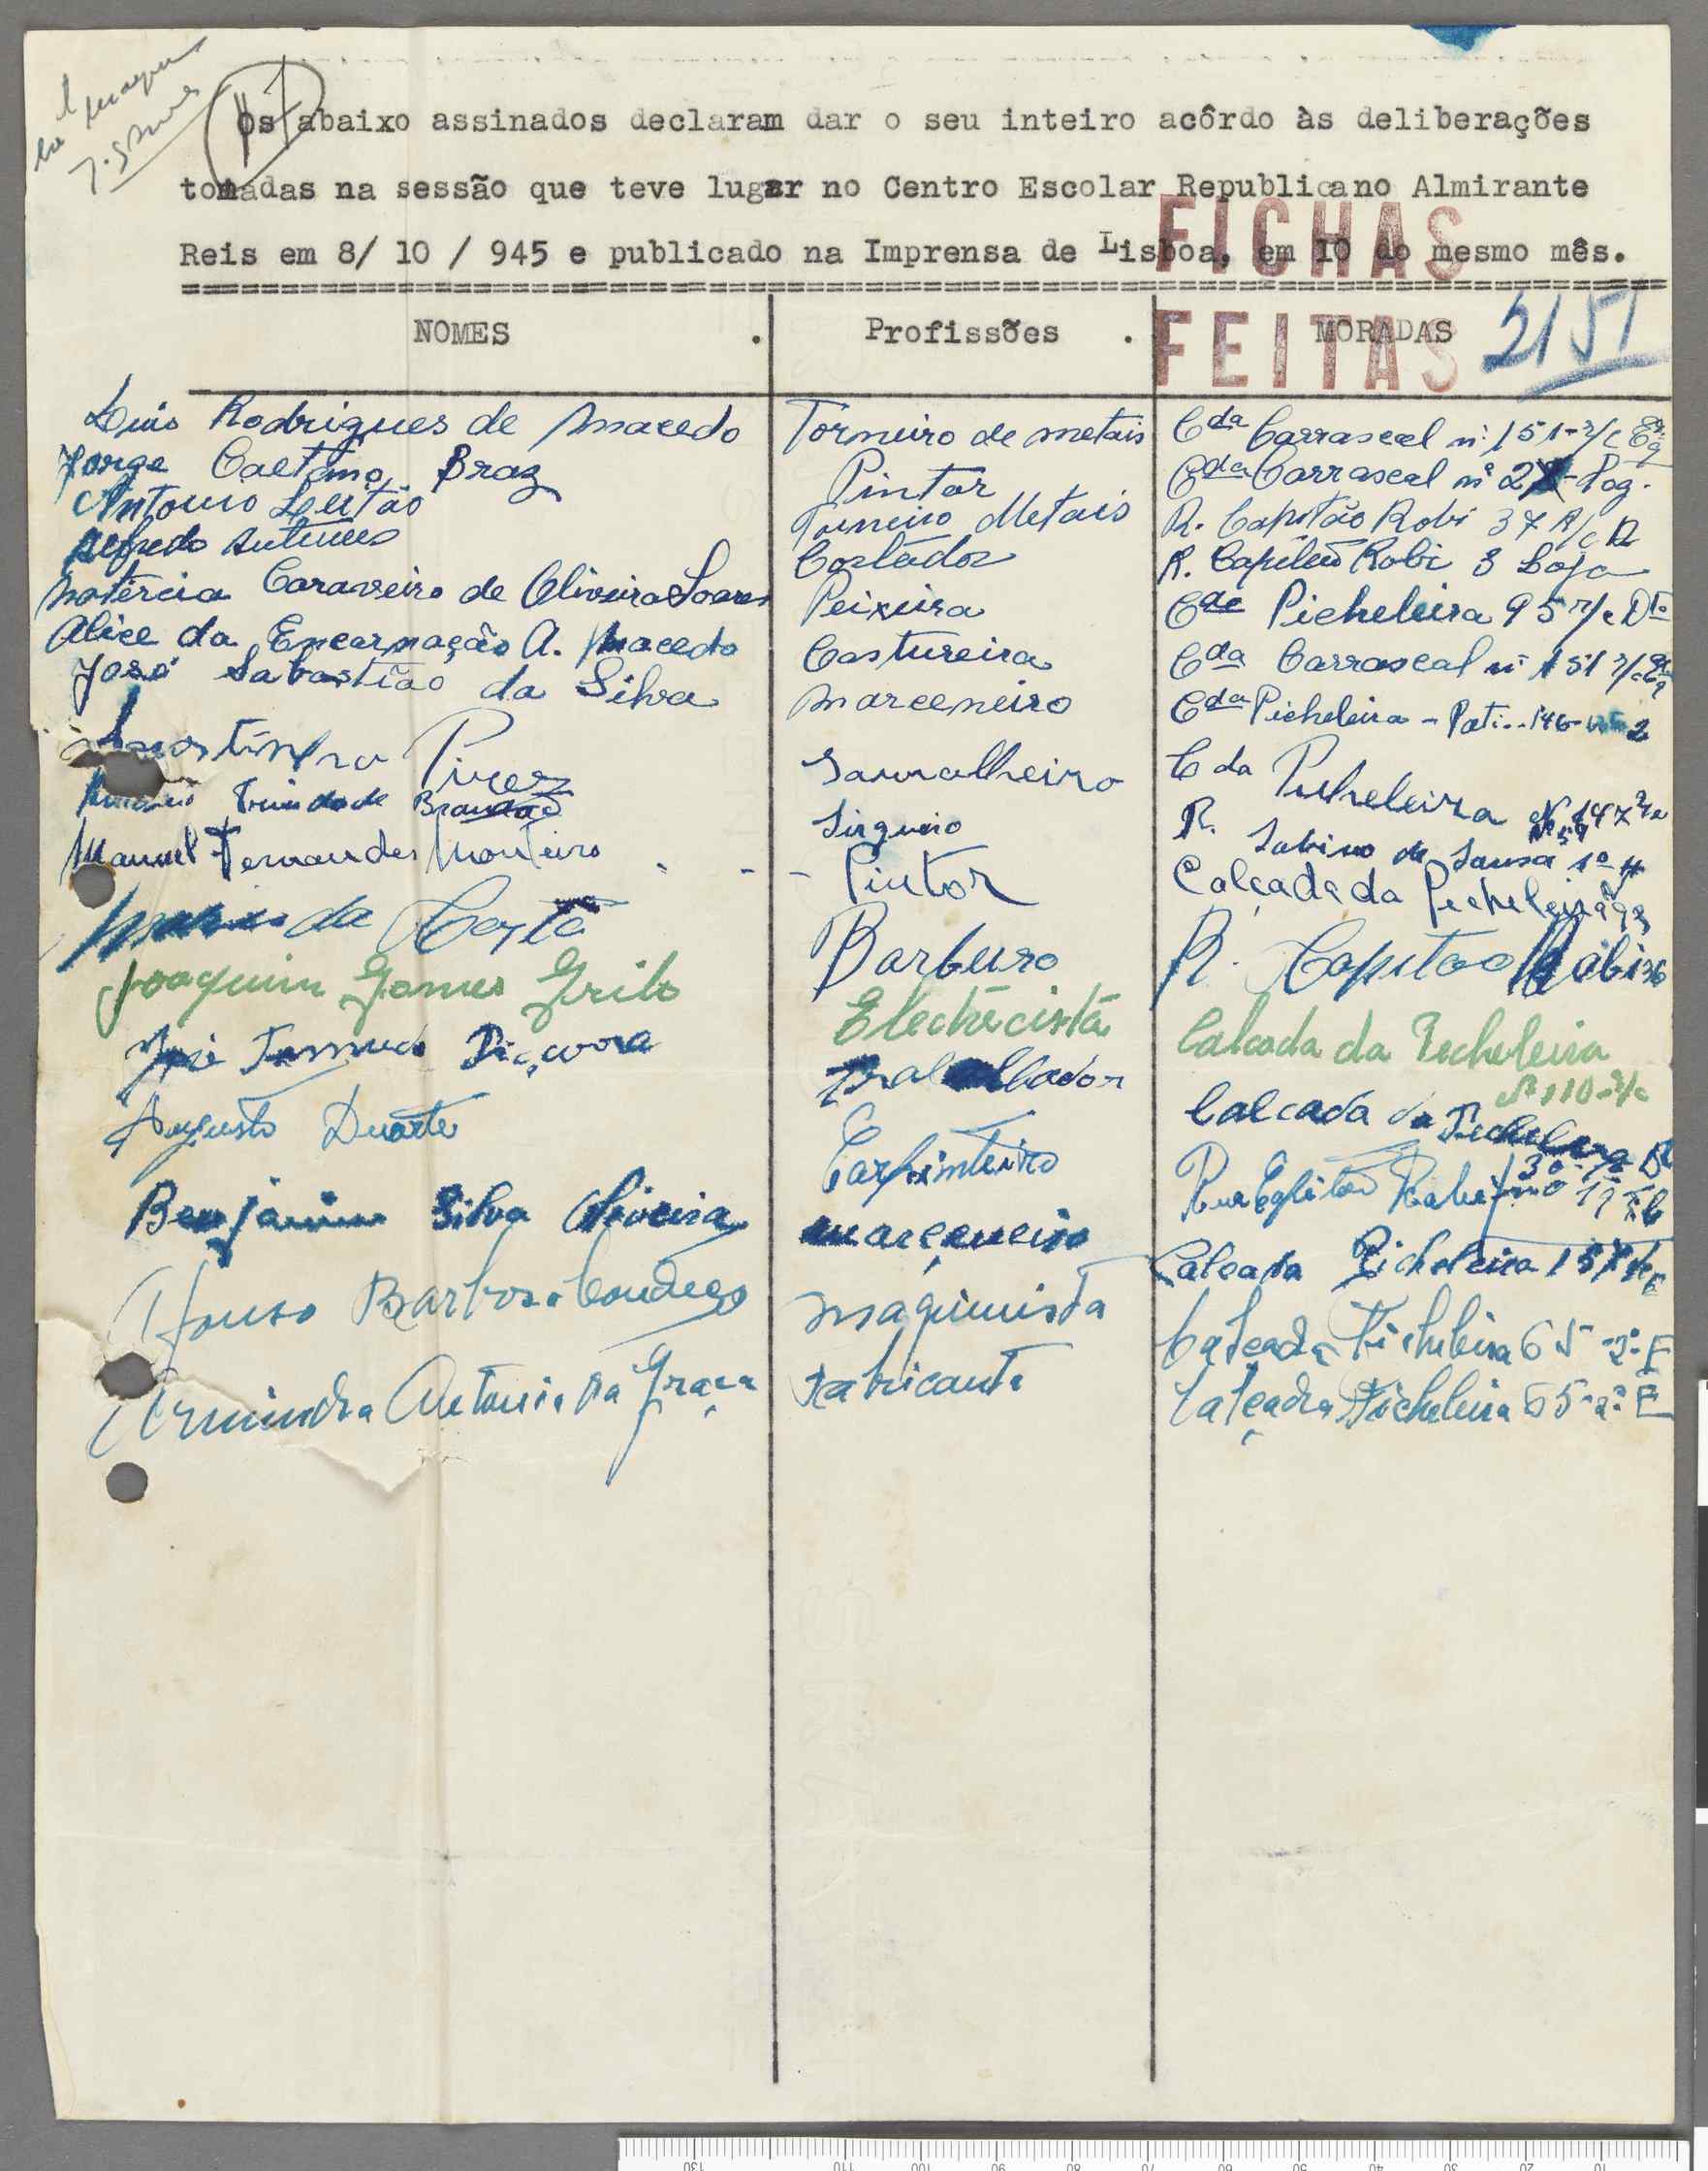 Os abaixo assinados declaram dar o seu inteiro acôrdo às deliberações
tomadas na sessão que teve lugar no Centro Escolar Republicano Almirante
Reis em 8/ 10 / 945 e publicado na Imprensa de Lisboa, em 10 do mesmo mês.
FICHAS
FEITAS
NOMES . Profissões . MORADAS 2151
Luis Rodrigues de Macedo Torneiro de metais Cda Carrascal nº 151-r/c Esq
Jorge Caetano Braz Pintor Cda Carrascal nº
Antonio Leitão Torneiro Metais R. Capitão Robi 37 R/c D
Alfredo Antunes Cortador R. Capitão Robi 3 Loja
Natércia Caraveiro de Oliveira Soares Peixeira Cda Picheleira 95 r/c Dto
Alice da Encarnação A. Macedo Costureira Cda Carrascal nº 151 r/c Esq
José Sabastião da Silva Marceneiro Cda Picheleira - Pati.. 146 2
Pires Sarralheiro C da Picheleira Nº 147 r/c
Trindade Brandão Sirgueiro R. Sabino de Sousa Nº 59 1º
Manuel Fernandes Monteiro - - Pintor Calçada da Picheleira
da Costa Barbeiro R. Capitao
Joaquim Gomes Grilo Electrecista Calcada da Picheleira
Nº 110-r/c
José Piçarra Trabalhador Calcada da Picheleira
Augusto Duarte Carpinteiro
Benjamim Silva Oliveira marçeneiro Calcada Picheleira 157
Afonso Barbosa Maquinista Calçada Picheleira 65-2º-E
Erminda Antonia da Graça Fabricanta Calçada Picheleira 65-2º E